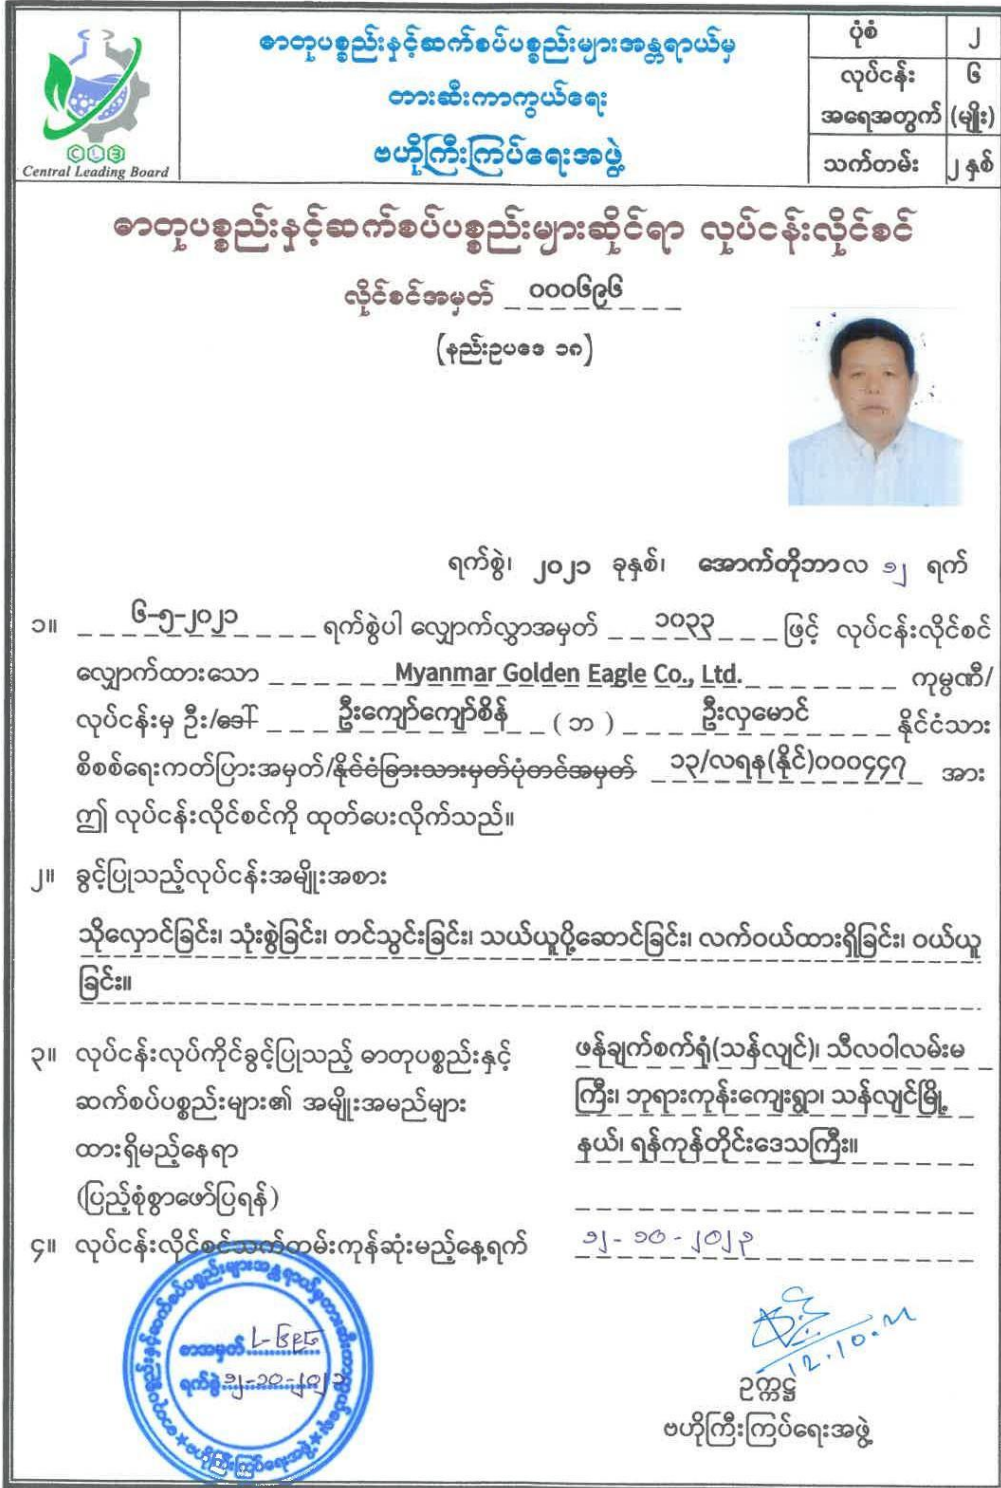 CLB
Central Leading Board
ဓာတုပစ္စည်းနှင့်ဆက်စပ်ပစ္စည်းများအန္တရာယ်မှ
တားဆီးကာကွယ်ရေး
ဗဟိုကြီးကြပ်ရေးအဖွဲ့
ပုံစံ ၂
လုပ်ငန်း ၆
အရေအတွက် (မျိုး)
သက်တမ်း ၂ နှစ်
ဓာတုပစ္စည်းနှင့်ဆက်စပ်ပစ္စည်းများဆိုင်ရာ လုပ်ငန်းလိုင်စင်
လိုင်စင်အမှတ် ၀၀၀၆၉၆
(နည်းဥပဒေ ၁၈)
ရက်စွဲ၊ ၂၀၂၁ ခုနှစ်၊ အောက်တိုဘာလ ၁၂ ရက်
၁။ ၆-၅-၂၀၂၁ ရက်စွဲပါ လျှောက်လွှာအမှတ် ၁၀၃၃ ဖြင့် လုပ်ငန်းလိုင်စင်
လျှောက်ထားသော Myanmar Golden Eagle Co., Ltd. ကုမ္ပဏီ/
လုပ်ငန်းမှ ဦး/ဒေါ် ဦးကျော်ကျော်စိန် ( ဘ ) ဦးလှမောင် နိုင်ငံသား
စိစစ်ရေးကတ်ပြားအမှတ်/နိုင်ငံခြားသားမှတ်ပုံတင်အမှတ် ၁၃/လရန(နိုင်)၀၀၀၄၄၇ အား
ဤ လုပ်ငန်းလိုင်စင်ကို ထုတ်ပေးလိုက်သည်။
၂။ ခွင့်ပြုသည့်လုပ်ငန်းအမျိုးအစား
သိုလှောင်ခြင်း၊ သုံးစွဲခြင်း၊ တင်သွင်းခြင်း၊ သယ်ယူပို့ဆောင်ခြင်း၊ လက်ဝယ်ထားရှိခြင်း၊ ဝယ်ယူ
ခြင်း။
၃။ လုပ်ငန်းလုပ်ကိုင်ခွင့်ပြုသည့် ဓာတုပစ္စည်းနှင့်
ဆက်စပ်ပစ္စည်းများ၏ အမျိုးအမည်များ
ထားရှိမည့်နေရာ
(ပြည့်စုံစွာဖော်ပြရန်)
ဖန်ချက်စက်ရုံ(သန်လျင်)၊ သီလဝါလမ်းမ
ကြီး၊ ဘုရားကုန်းကျေးရွာ၊ သန်လျင်မြို့
နယ်၊ ရန်ကုန်တိုင်းဒေသကြီး။
၄။ လုပ်ငန်းလိုင်စင်သက်တမ်းကုန်ဆုံးမည့်နေ့ရက် ၁၂-၁၀-၂၀၂၃
ဓာတုပစ္စည်းနှင့်ဆက်စပ်ပစ္စည်းများအန္တရာယ်မှတားဆီးကာကွယ်ရေး
စာအမှတ် L-၆၉၆
ရက်စွဲ ၁၂-၁၀-၂၀၂၁
ဗဟိုကြီးကြပ်ရေးအဖွဲ့
12.10.21
ဥက္ကဋ္ဌ
ဗဟိုကြီးကြပ်ရေးအဖွဲ့